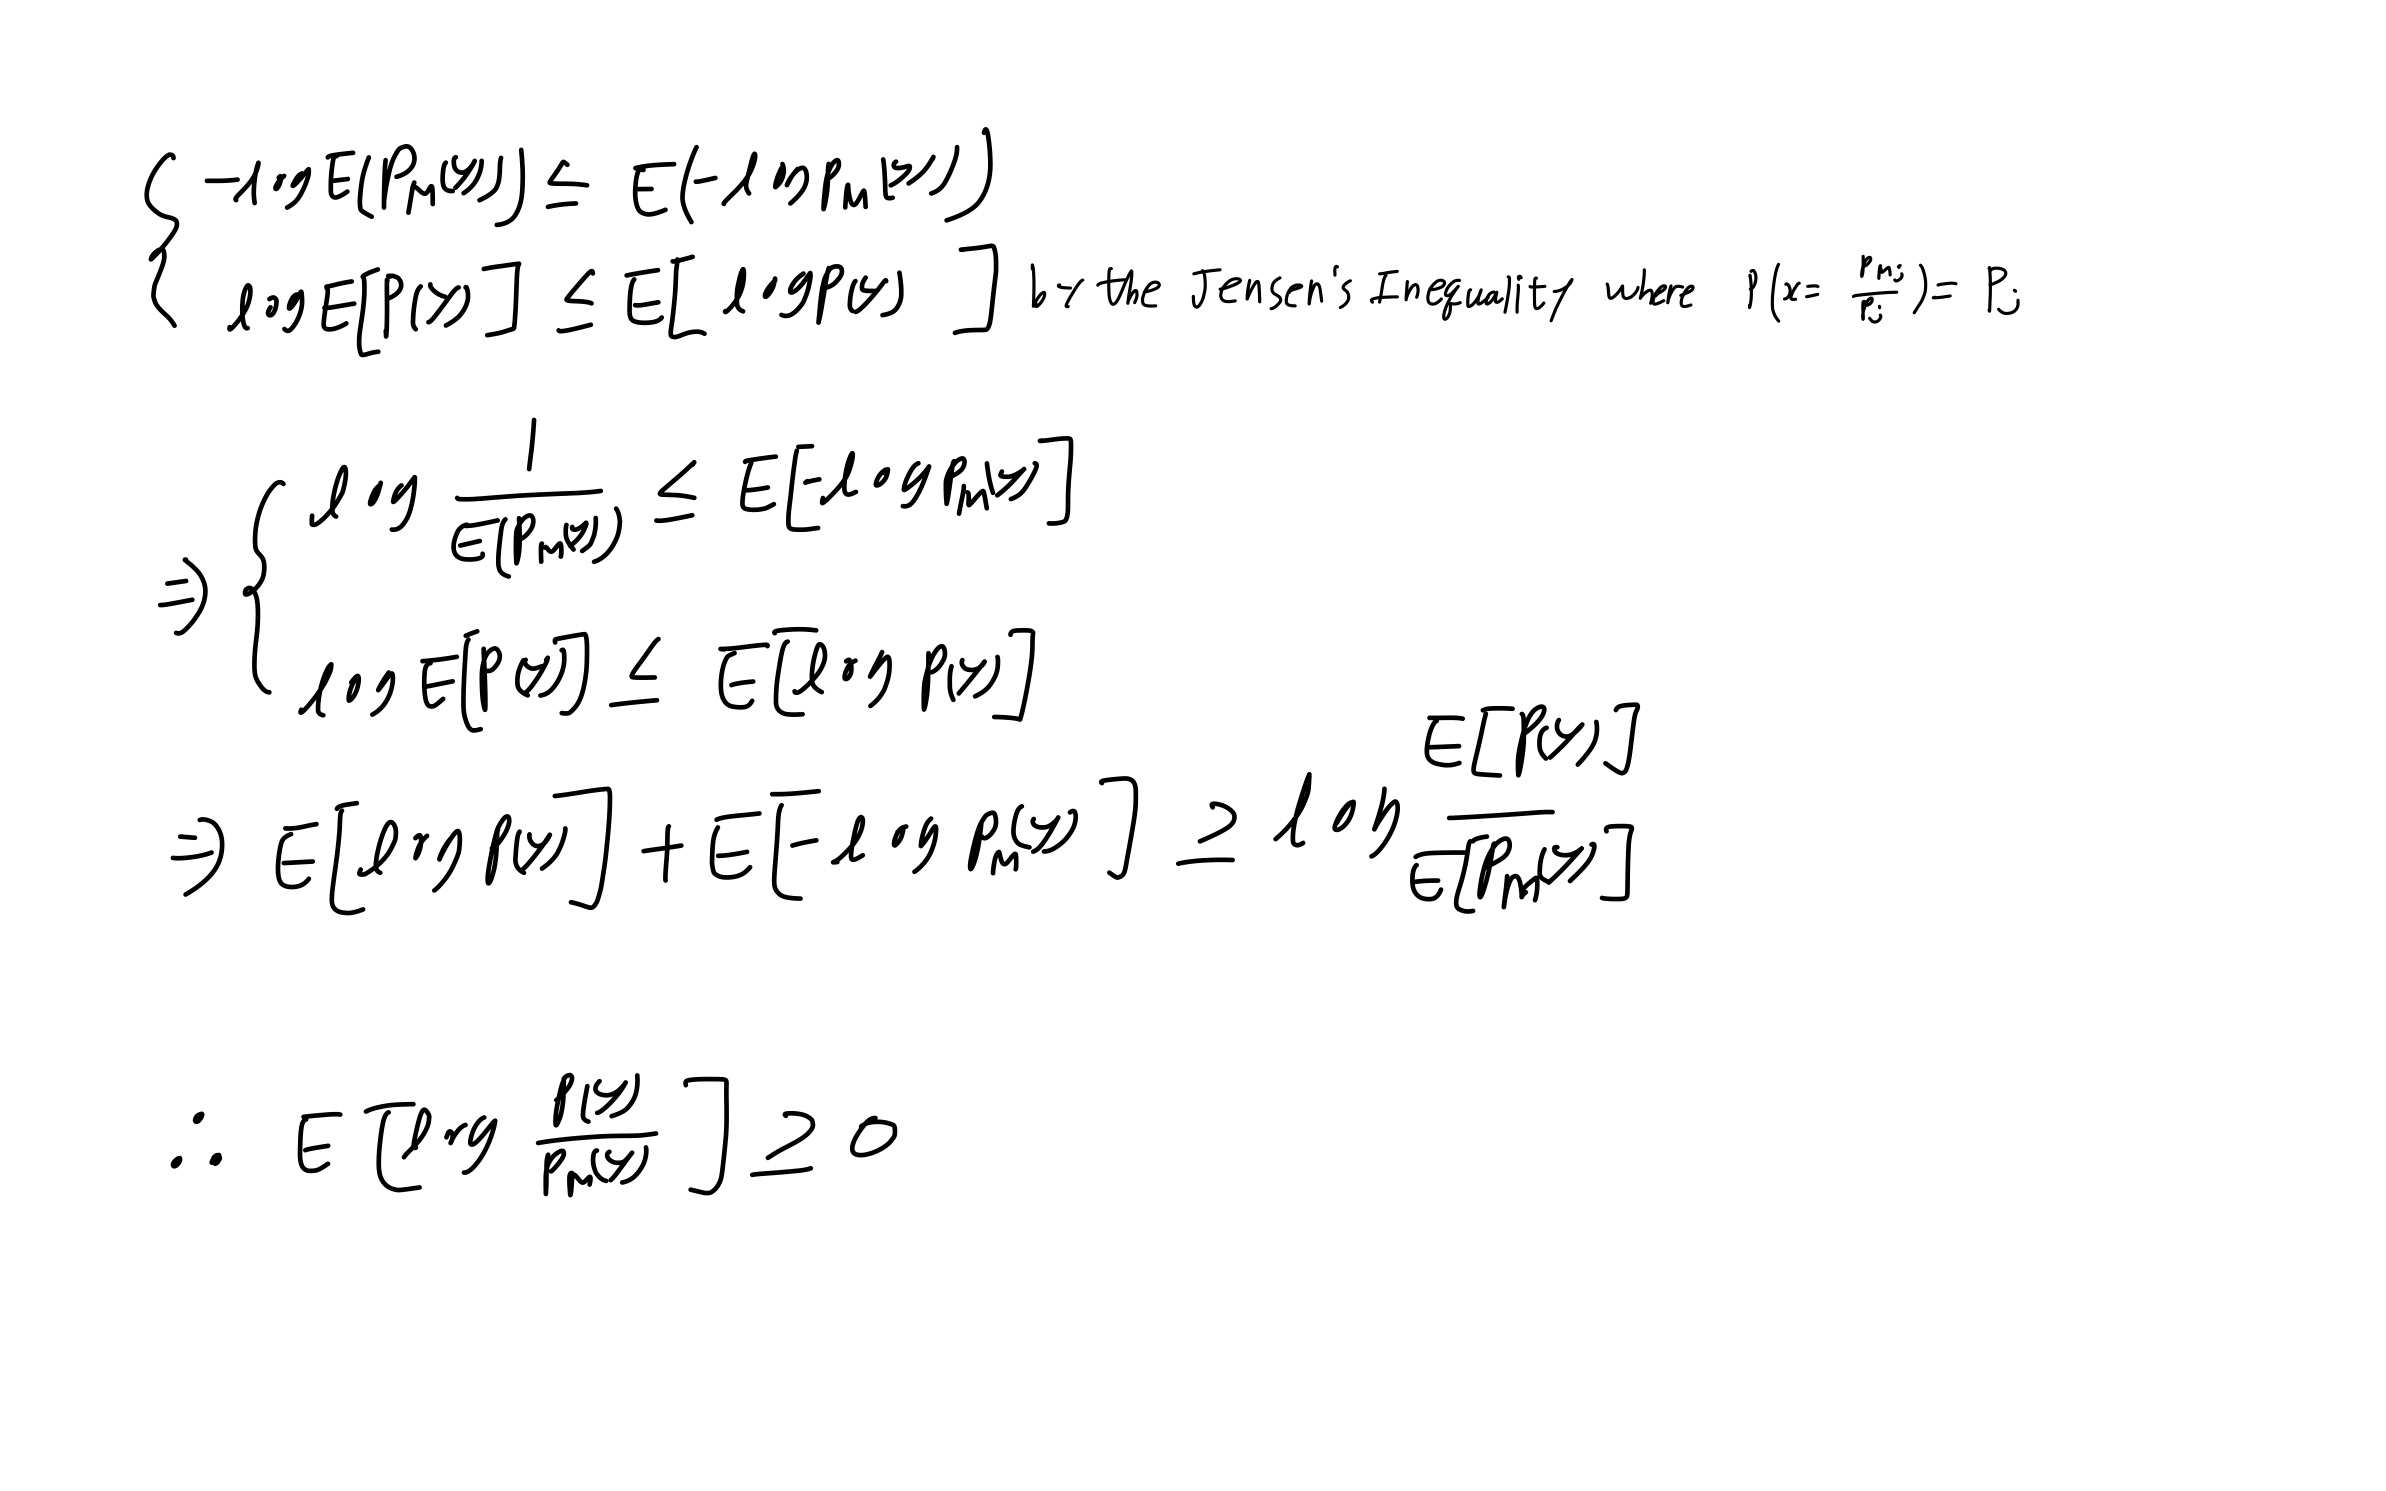 -log E(P_M(y)) ≤ E(-log P_M(y))
log E[P(y)] ≤ E[log P(y)] by the Jensen's Inequality where P(x = P_{M i} / P_i) = P_i
⇒ log 1 / E(P_M(y)) ≤ E[-log P_M(y)]
log E[P(y)] ≤ E[log P(y)]
⇒ E[log P(y)] + E[-log P_M(y)] ≥ log E[P(y)] / E[P_M(y)]
∴ E[log P(y) / P_M(y)] ≥ 0